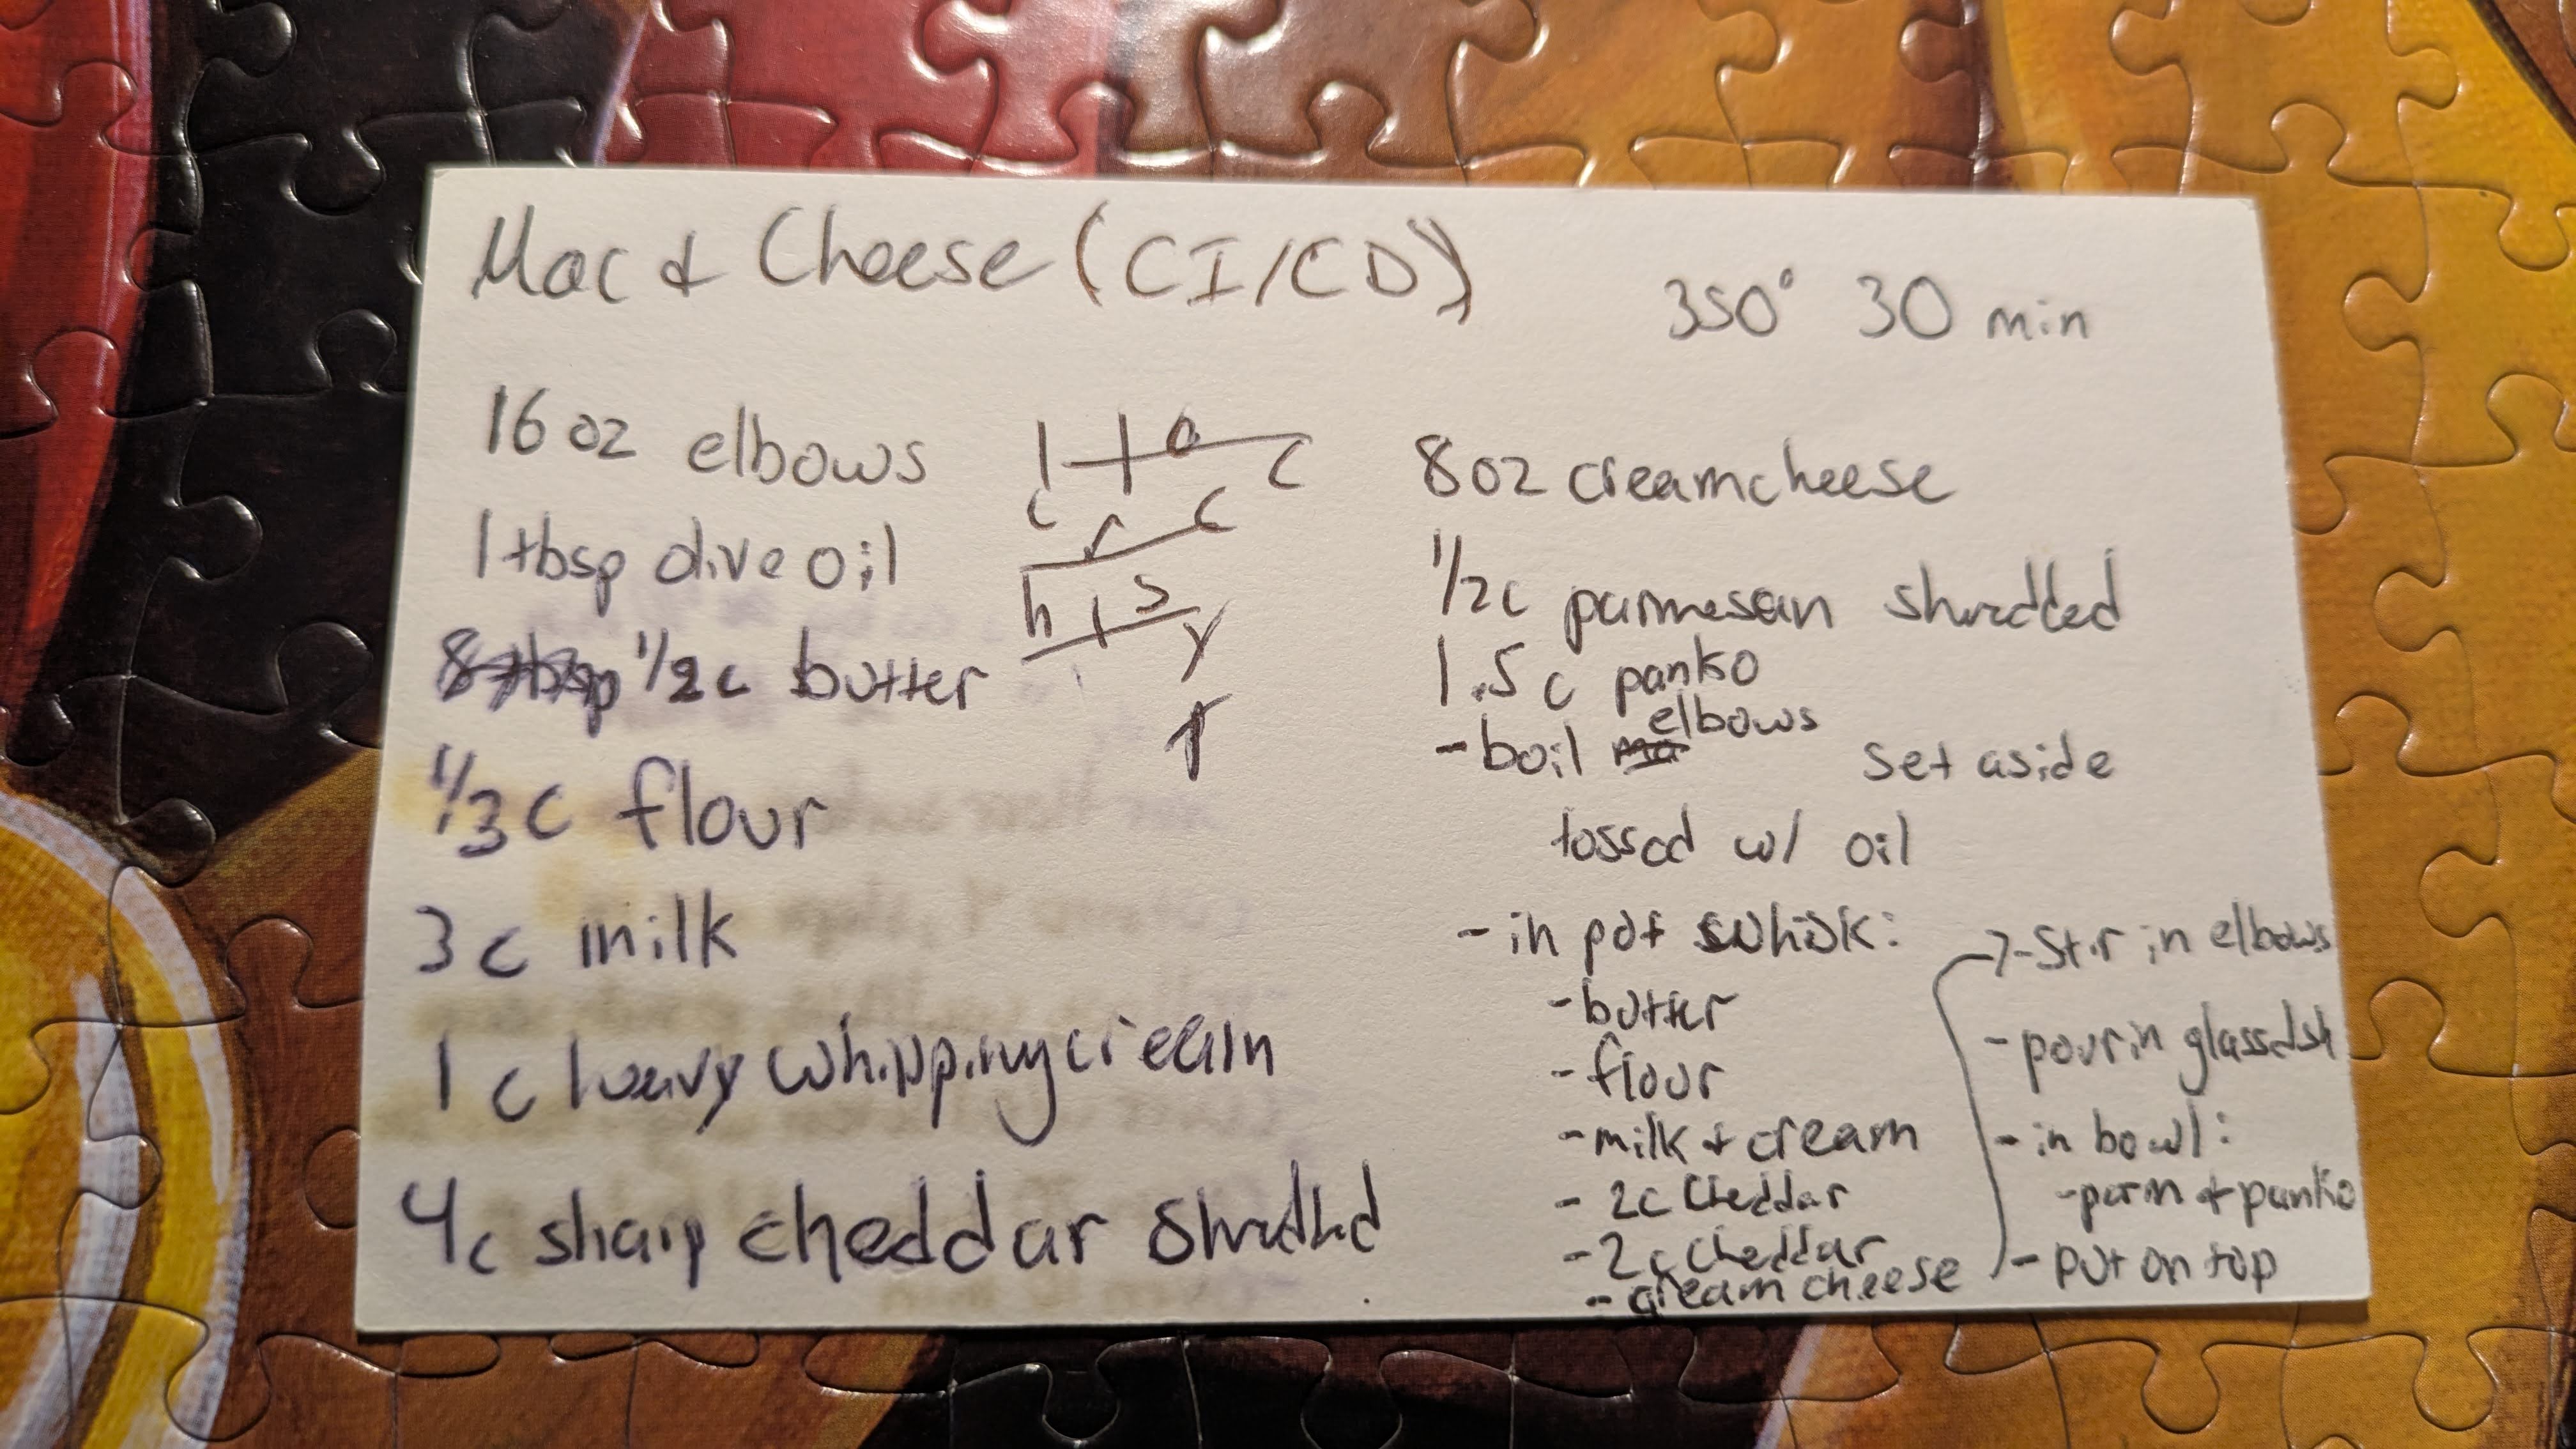 Mac & Cheese (CI/CD)
350° 30 min
16 oz elbows
1 tbsp olive oil
8 tbsp 1/2 c butter
1/3 c flour
3 c milk
1 c heavy whipping cream
4c sharp cheddar shredded
8 oz creamcheese
1/2 c parmesan shredded
1.5 c panko
- boil ma elbows set aside
tossed w/ oil
- in pot whisk:
- butter
- flour
- milk & cream
- 2c cheddar
- 2c cheddar
- cream cheese
- Stir in elbows
- pour in glass dish
- in bowl:
- parm & panko
- put on top